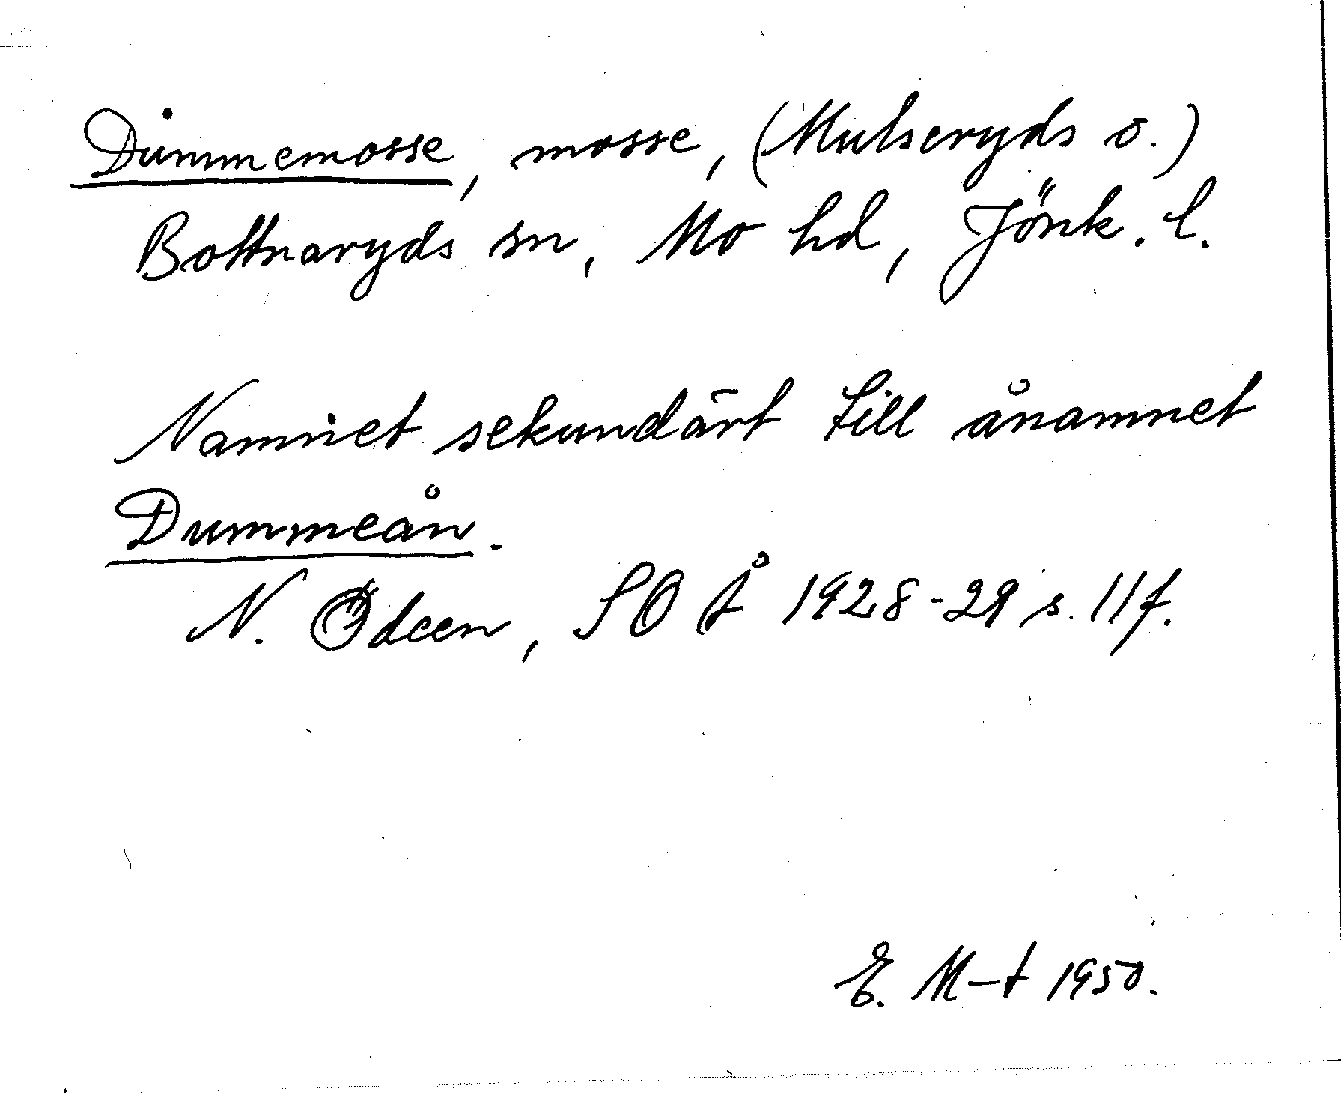 Dummemosse, mosse, (Mulseryds o.)
Bottnaryds sn, Mo hd, Jönk. l.
Namnet sekundärt till ånamnet
Dummeån.
N. Ödeen, SOÅ 1928-29 s. 11f.
E. M-t 1950.